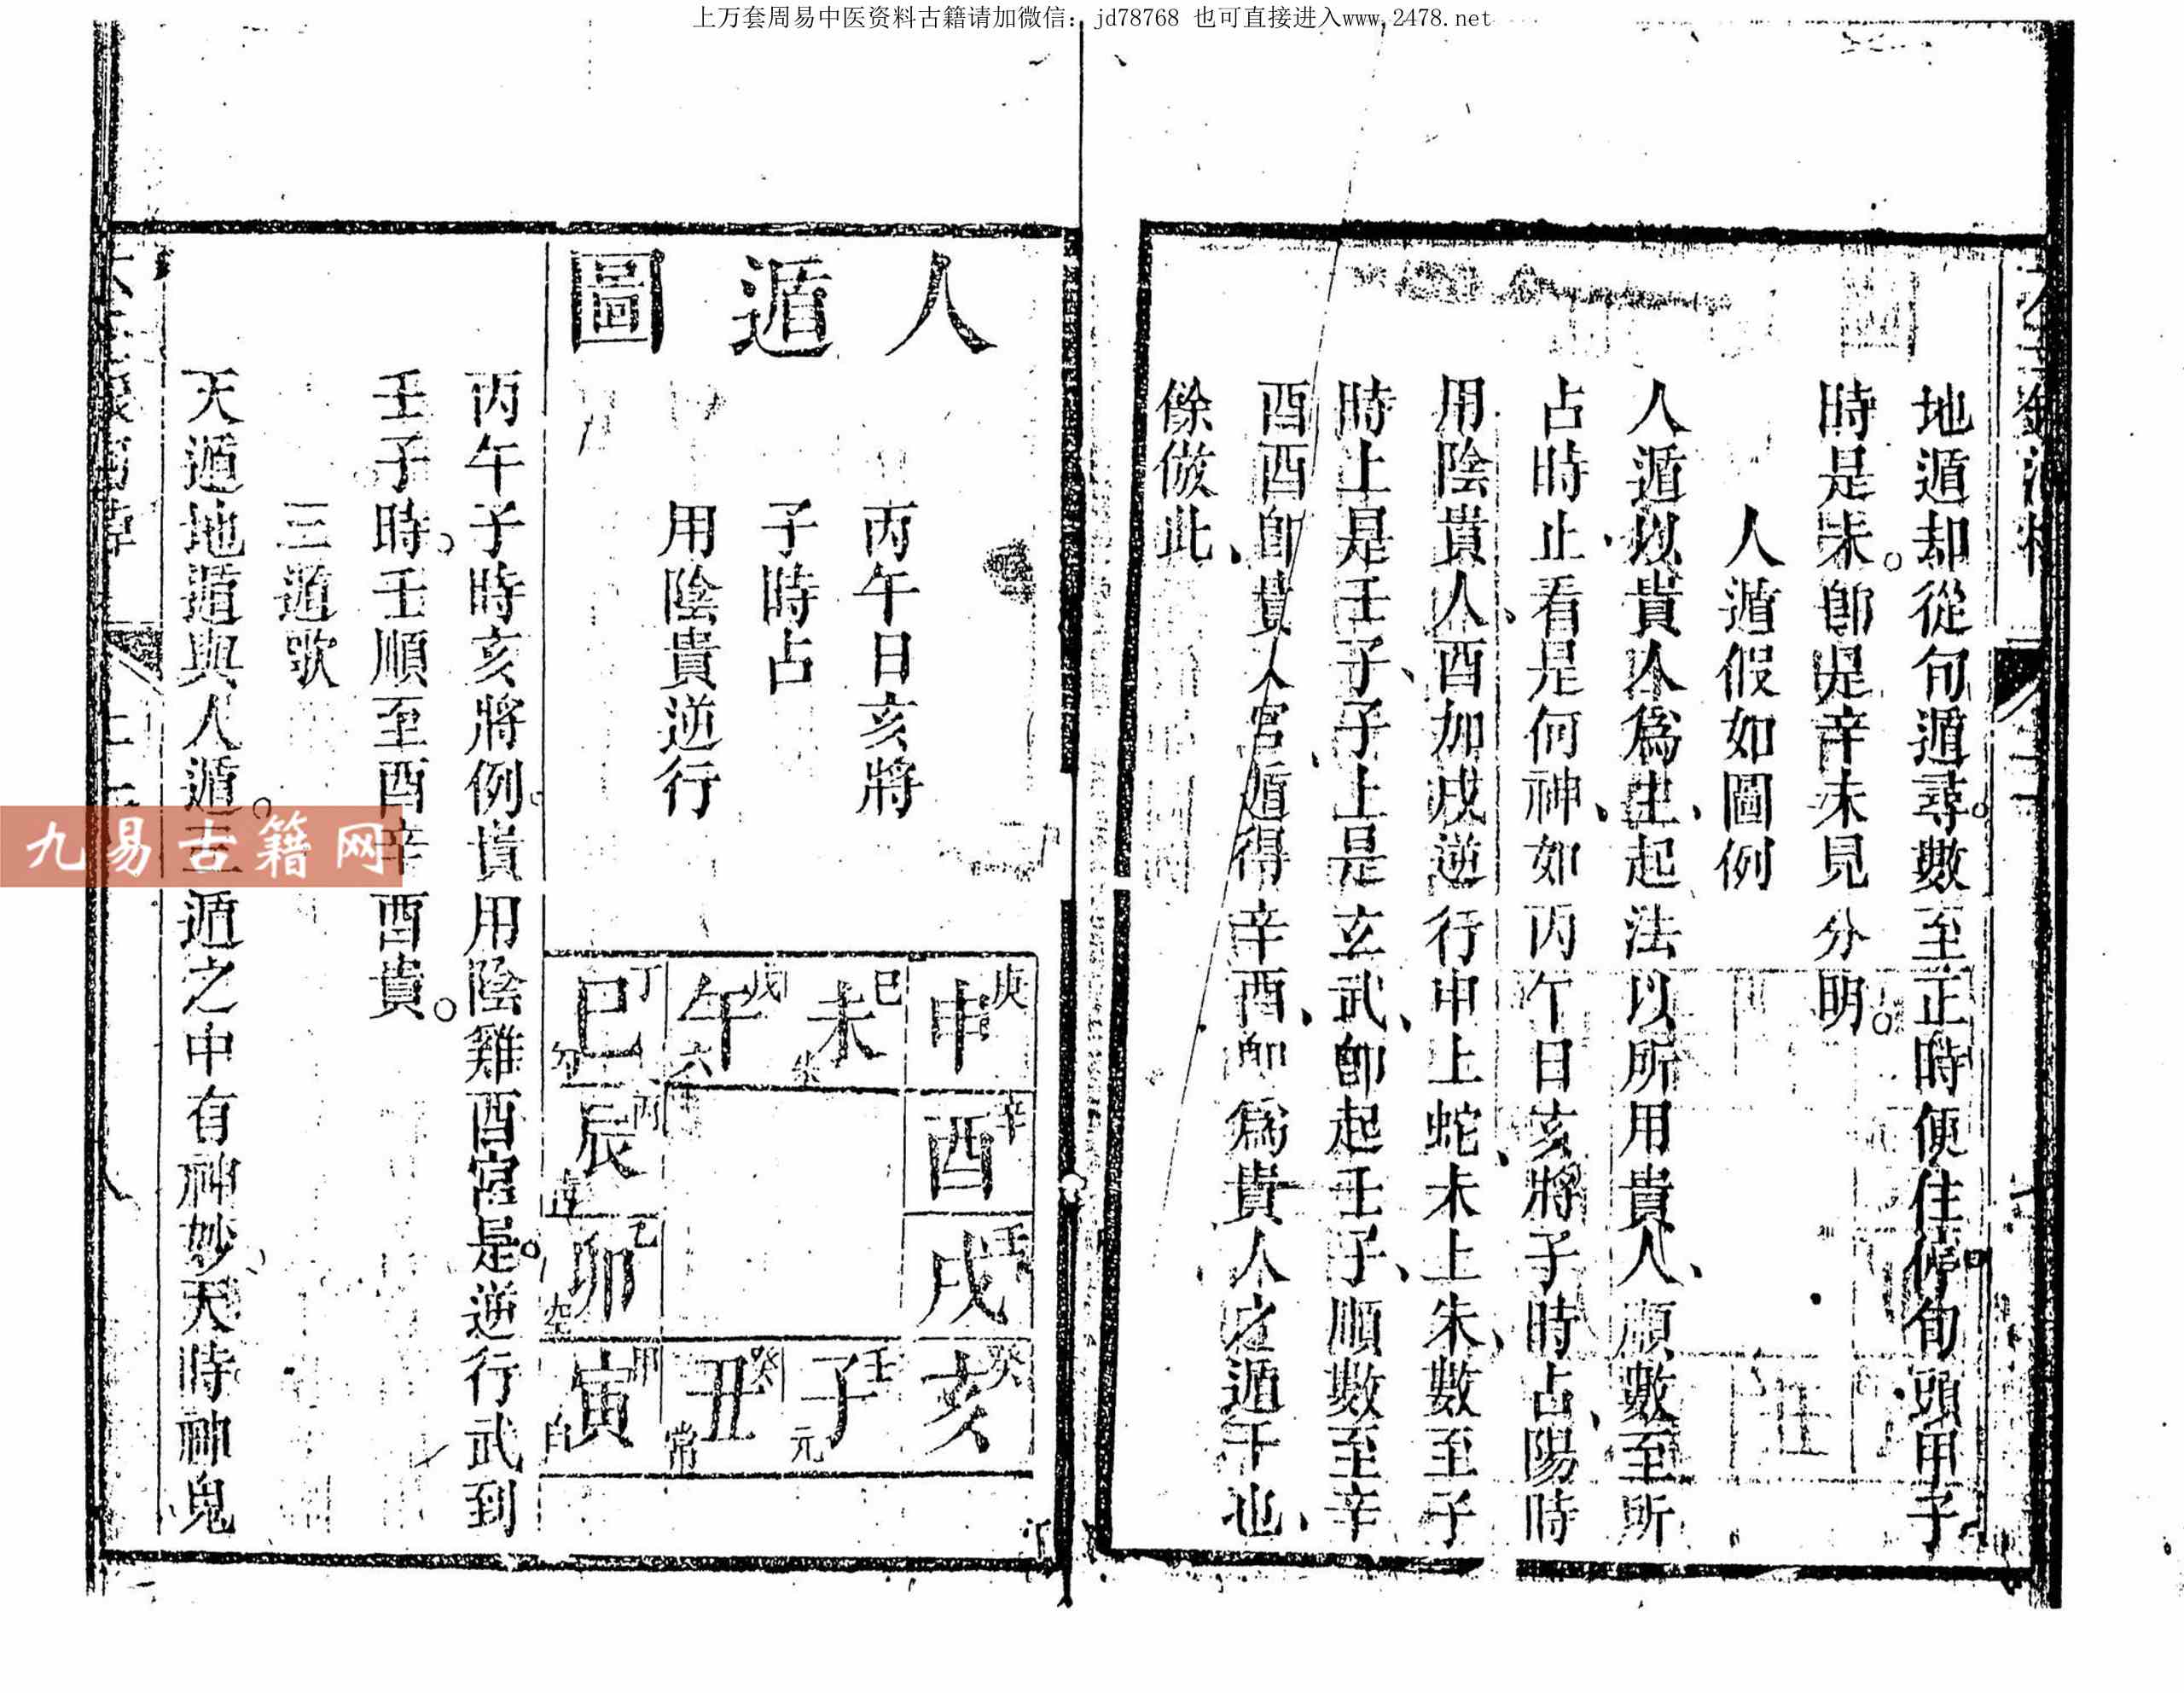 上万套周易中医资料古籍请加微信：jd78768 也可直接进入www.2478.net
地遁却從旬遁尋數至正時便住停旬頭甲子
時是未即是辛未見分明
人遁假如圖例
人遁以貴人為主起法以所用貴人順數至所
占時止看是何神如丙午日亥將子時占陽時
用陰貴人酉加戌逆行申上蛇未上朱數至子
時上是壬子子上是玄武即起壬子順數至辛
酉酉即貴人宮遁得辛酉即為貴人之遁干也
餘倣此
人遁圖
丙午日亥將
子時占
用陰貴逆行
庚申
己未
戊午六
丁巳勾
辛酉
丙辰
壬戌
乙卯空
癸亥
壬子元
癸丑常
甲寅白
丙午子時亥將例貴用陰雞酉宮是逆行武到
壬子時壬順至酉辛酉貴
三遁歌
天遁地遁與人遁三遁之中有神妙天時神鬼
九易古籍网